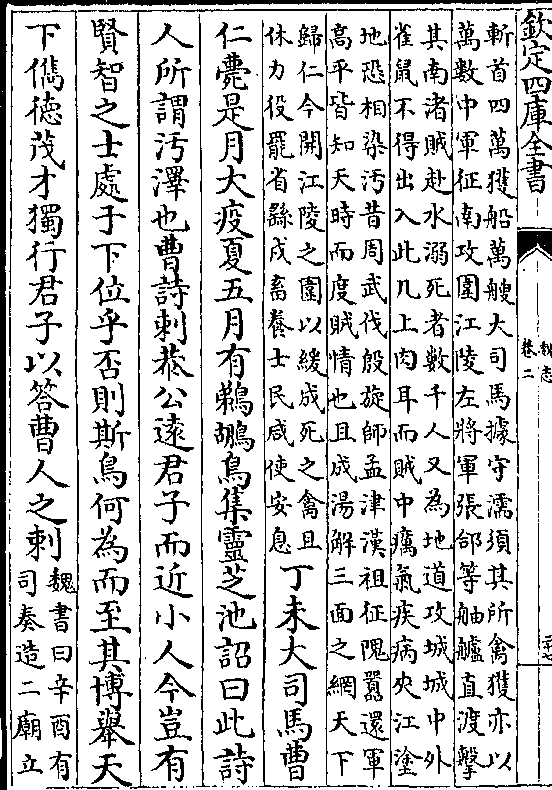 欽定四庫全書
魏志
卷二
斬首四萬獲船萬艘大司馬據守濡須其所禽獲亦以
萬數中軍征南攻圍江陵左將軍張郃等舳艫直渡擊
其南渚賊赴水溺死者數千人又為地道攻城城中外
雀鼠不得出入此几上肉耳而賊中癘氣疾病夾江塗
地恐相染汚昔周武伐殷旋師孟津漢祖征隗囂還軍
高平皆知天時而度賊情也且成湯解三面之網天下
歸仁今開江陵之圍以緩成死之禽且
休力役罷省繇戍畜養士民咸使安息
丁未大司馬曹
仁薨是月大疫夏五月有鵜鶘鳥集靈芝池詔曰此詩
人所謂汚澤也曹詩刺恭公遠君子而近小人今豈有
賢智之士處于下位乎否則斯鳥何為而至其博舉天
下儁德茂才獨行君子以答曹人之刺
魏書曰辛酉有
司奏造二廟立